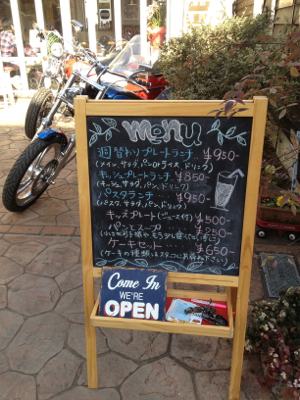 menu
週替わりプレートランチ ¥950-
(メイン、サラダ、パンorライス、ドリンク)
キッシュプレートランチ ¥850-
(キッシュ、サラダ、パン、ドリンク)
パスタランチ ¥950-
(パスタ、サラダ、パン、ドリンク)
キッズプレート(ジュース付) ¥500-
パンとスープ ¥250-
ケーキセット ¥650-
(ケーキの種類はスタッフにお尋ね下さい)
Come In
WE'RE
OPEN